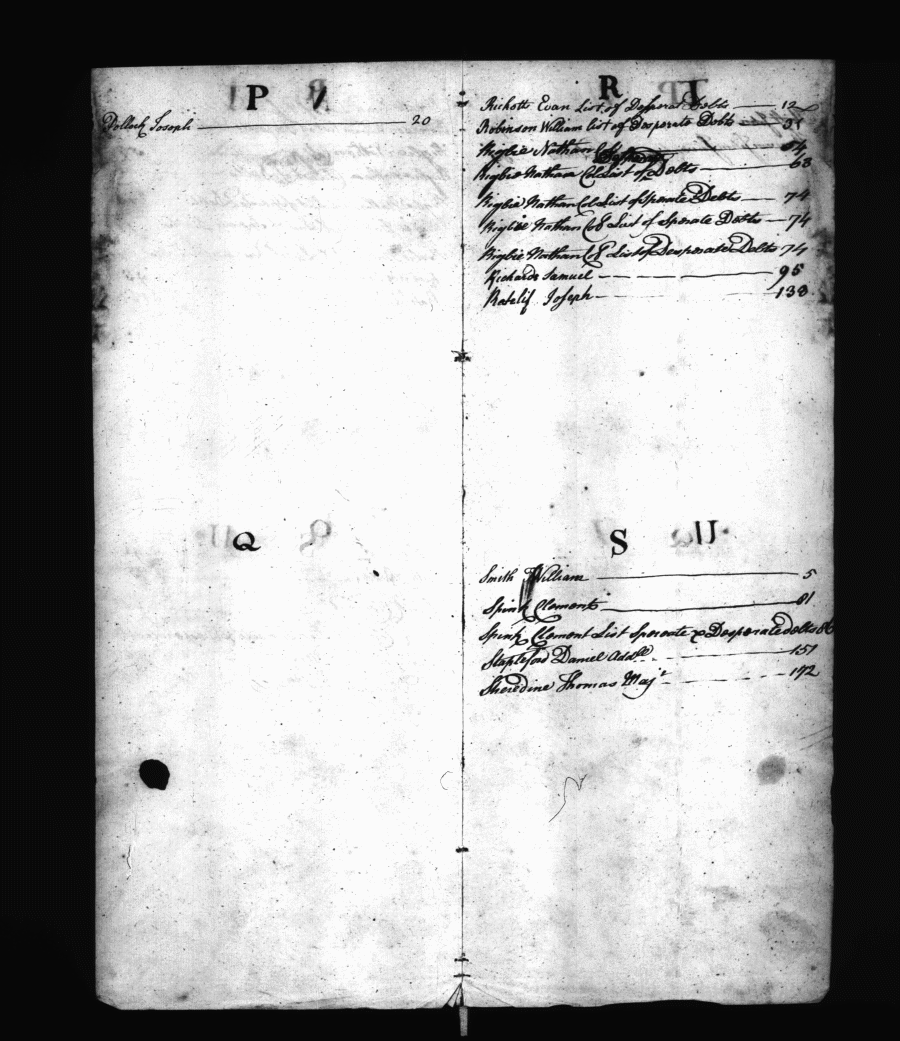 P
Pollock Joseph 20
Q
R
Ricketts Evan List of Desperat Debts 12
Robinson William list of Desperate Debts 31
Rigbie Nathan Col 54
Desperate
Rigbie Nathan Col List of Debts 63
Rigbie Nathan Col List of Sperate Debts 74
Rigbie Nathan Col List of Sperate Debts 74
Rigbie Nathan Col List of Desperate Debts 74
Richards Samuel 95
Ratclif Joseph 138
S
Smith William 5
Spink Clement 81
Spink Clement List Sperate & Desperate debts 86
Stapleford Daniel Addl 151
Sheredine Thomas Majr 172